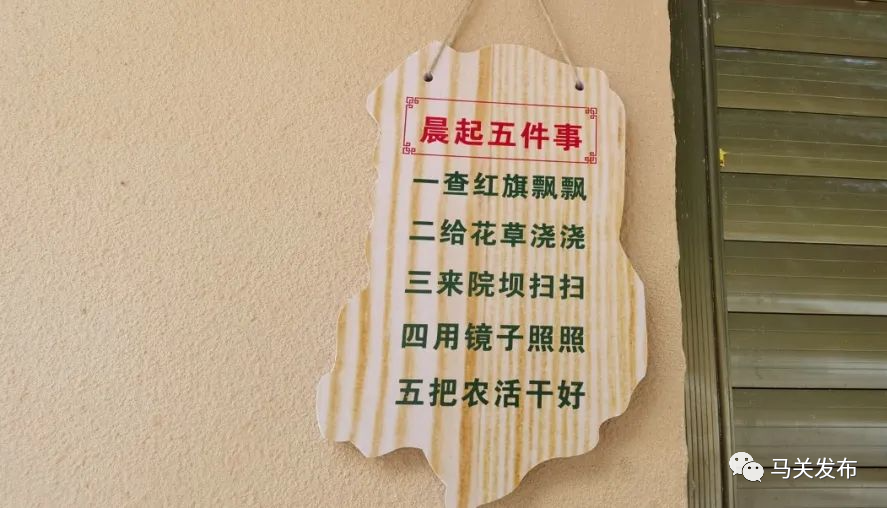 晨起五件事
一查红旗飘飘
二给花草浇浇
三来院坝扫扫
四用镜子照照
五把农活干好
马关发布